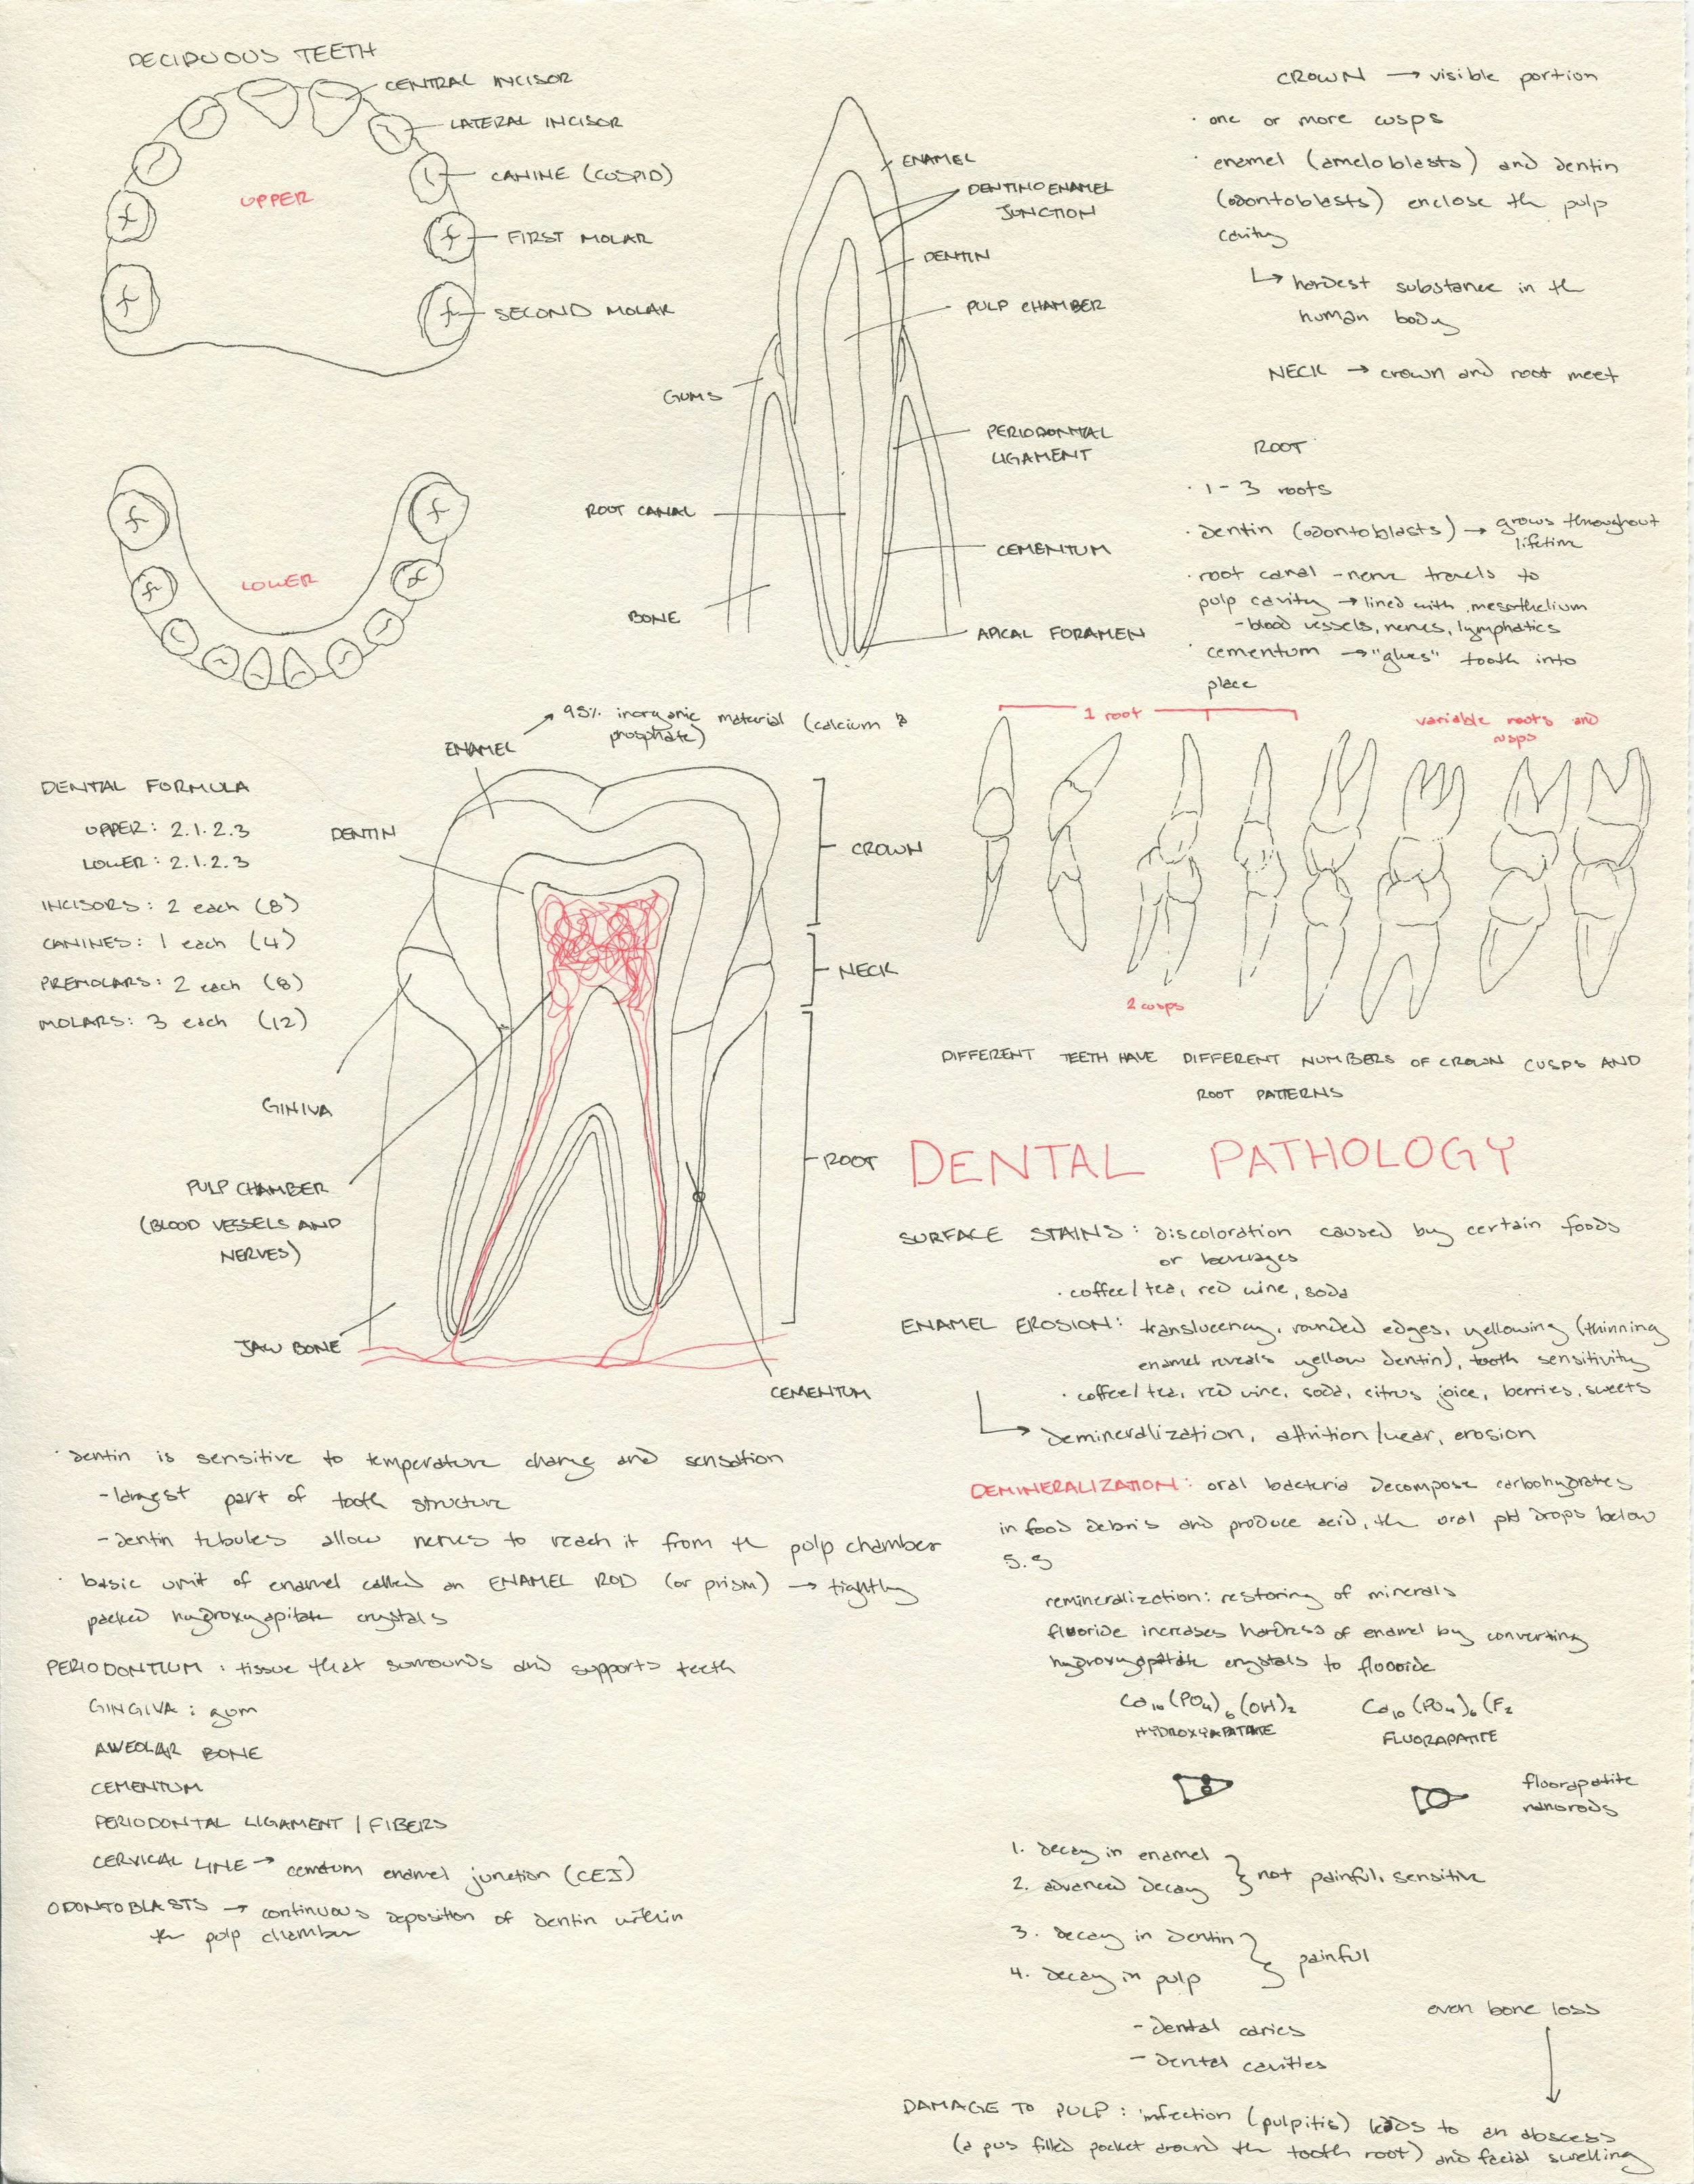 DECIDUOUS TEETH
CENTRAL INCISOR
LATERAL INCISOR
CANINE (CUSPID)
UPPER
FIRST MOLAR
SECOND MOLAR
LOWER
ENAMEL
DENTINOENAMEL
JUNCTION
DENTIN
PULP CHAMBER
GUMS
PERIODONTAL
LIGAMENT
ROOT CANAL
CEMENTUM
BONE
APICAL FORAMEN
CROWN → visible portion
· one or more cusps
· enamel (ameloblasts) and dentin
(odontoblasts) enclose the pulp
cavity
↳ hardest substance in the
human body
NECK → crown and root meet
ROOT
· 1-3 roots
· dentin (odontoblasts) → grows throughout
lifetime
· root canal - nerve travels to
pulp cavity → lined with mesothelium
- blood vessels, nerves, lymphatics
· cementum → "glues" tooth into
place
ENAMEL → 95% inorganic material (calcium &
phosphate)
DENTAL FORMULA
UPPER: 2.1.2.3
LOWER: 2.1.2.3
INCISORS: 2 each (8)
CANINES: 1 each (4)
PREMOLARS: 2 each (8)
MOLARS: 3 each (12)
DENTIN
CROWN
NECK
ROOT
GINIVA
PULP CHAMBER
(BLOOD VESSELS AND
NERVES)
JAW BONE
CEMENTUM
1 root
variable roots and
cusps
2 cusps
DIFFERENT TEETH HAVE DIFFERENT NUMBERS OF CROWN CUSPS AND
ROOT PATTERNS
· dentin is sensitive to temperature change and sensation
- largest part of tooth structure
- dentin tubules allow nerves to reach it from the pulp chamber
· basic unit of enamel called an ENAMEL ROD (or prism) → tightly
packed hydroxyapitate crystals
PERIODONTIUM: tissue that surrounds and supports teeth
GINGIVA: gum
AWEOLAR BONE
CEMENTUM
PERIODONTAL LIGAMENT / FIBERS
CERVICAL LINE → cemetum enamel junction (CEJ)
ODONTOBLASTS → continuous deposition of dentin within
the pulp chamber
DENTAL PATHOLOGY
SURFACE STAINS: discoloration caused by certain foods
or beverages
· coffee/tea, red wine, soda
ENAMEL EROSION: translucency, rounded edges, yellowing (thinning
enamel reveals yellow dentin), tooth sensitivity
· coffee/tea, red wine, soda, citrus joice, berries, sweets
↳ demineralization, attrition/wear, erosion
DEMINERALIZATION: oral bacteria decompose carbohydrates
in food debris and produce acid, the oral pH drops below
5.5
remineralization: restoring of minerals
fluoride increases hardness of enamel by converting
hydroxyapatate crystals to flooride
Ca₁₀(PO₄)₆(OH)₂ Ca₁₀(PO₄)₆(F₂
HYDROXYAPATATE FLUORAPATITE
fluorapatite
nanorods
1. decay in enamel
2. advanced decay } not painful, sensitive
3. decay in dentin
4. decay in pulp } painful
- dental caries
- dental cavities
even bone loss
DAMAGE TO PULP: infection (pulpitis) leads to an abscess
(a pus filled pocket around the tooth root) and facial swelling